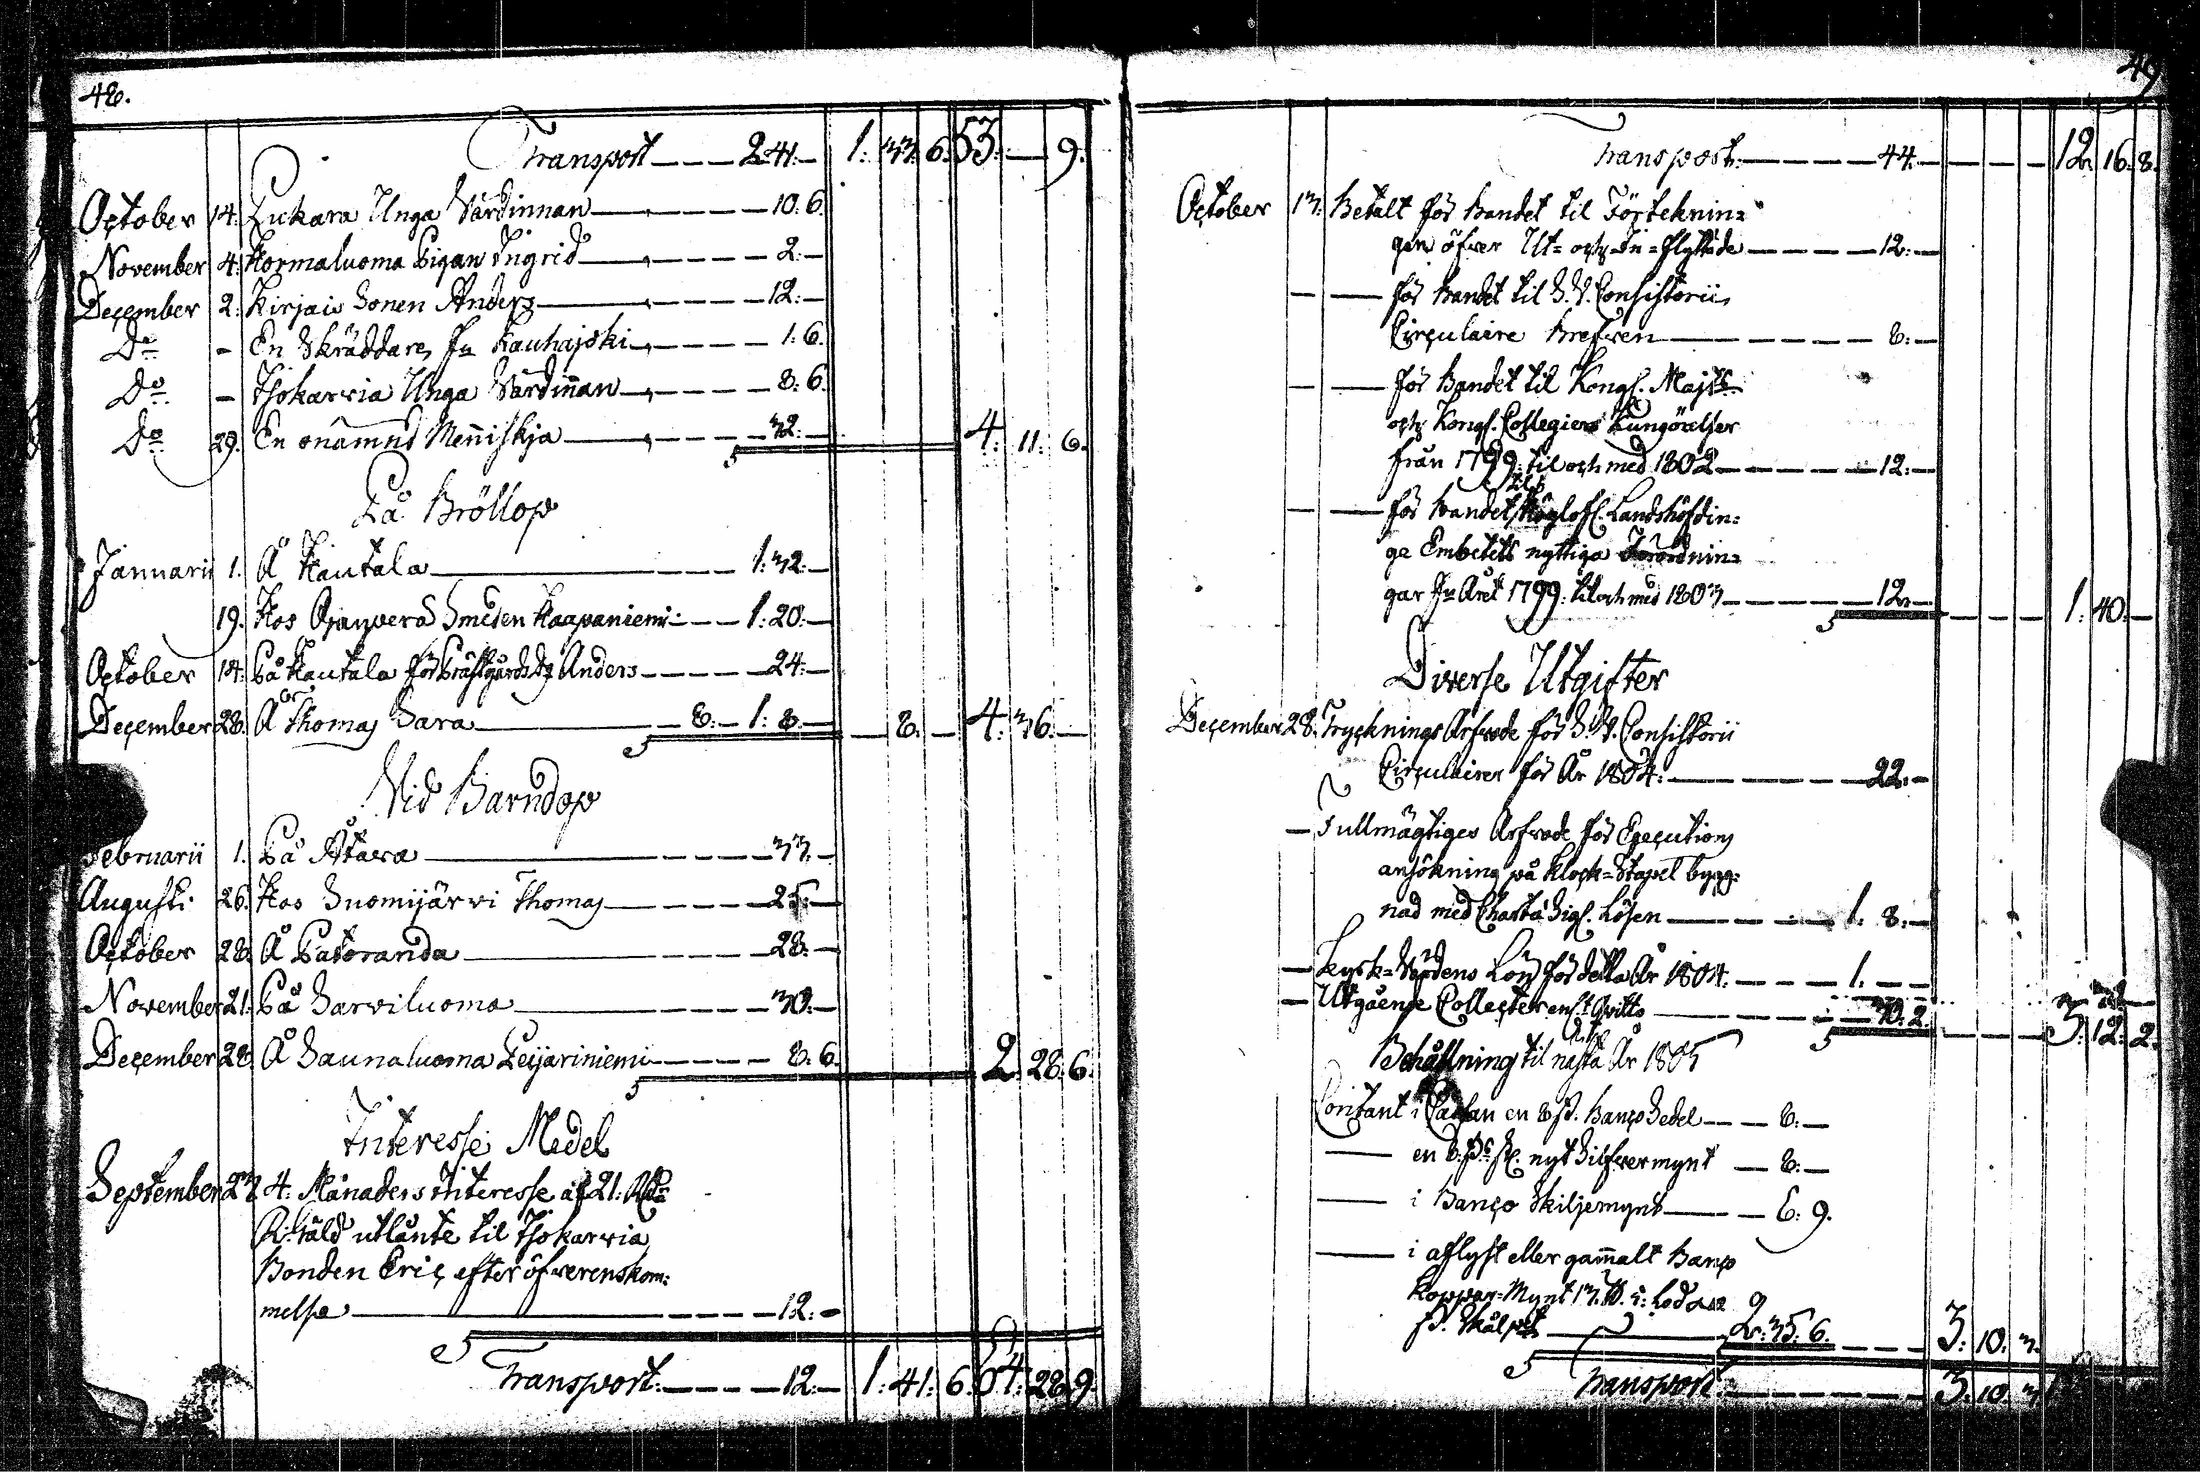 48.
Transport 2.41. 1. 33. 6. 53. — 9.
October 14. Lukara Unga Värdinnan 10. 6.
November 4. Hormaluoma Pigan Ingrid 2.
December 2. Kirjais Sonen Anders 12.
Do — En Skräddare fr Kauhajoki 1. 6.
Do — Isokarvia Unga Värdinnan 8. 6.
Do 29. En onämnd Menniskja 32. 4. 11. 6.
På Bröllop
Januarii 1. Å Hautala 1. 32.
19. Hos Smeden Haapaniemi 1. 20.
October 14. På Hautala för Prästgårds Anders 24.
December 28. Å Thomas Sara 8. 1. 8. 8. 4. 36.
Vid Barndop
Februarii 1. På 33.
Augusti 26. Hos Suomijärvi Thomas 25.
October 28. Å Patoranda 28.
November 21. På Sarviluoma 30.
December 28. Å Saunaluoma Leijariniemi 8. 6. 2. 28. 6.
Interesse Medel
September 23. 4. Månaders interesse af 21. Rdr
R:gäld utlånte til Isokarvia
Bonden Eric, efter öfverenskom:
melse 12.
Transport 12. 1. 41. 6. 64. 28. 9.
49
Transport 44. 12. 16. 8.
October 13. Betalt för bandet til Förteknin:
gen öfver Ut= och In=flyttade 12.
för bandet til S. V. Consistorii
Circulaire brefven 8.
för bandet til Kongl. Majts
och Kongl. Collegiers Kungörelser
från 1799. til och med 1802 12.
til
för bandet Höglofl. Landshöfdin:
ge Embetets nyttiga Förordnin:
gar fr Året 1799. til och med 1803 12. 1. 40.
Diverse Utgifter
December 28. Trycknings Arfvode för S. V. Consistorii
Circulairer för År 1804. 22.
Fullmägtiges Arfvode för Executions
ansökning på Klock=Stapel bygg:
nad med Charta Sigl. Lösen 1. 8.
Kyrk=Värdens Lön för detta År 1804. 1.
Utgående Collecter enl. Qvitto 30. 2. 3. 12. 2.
Behållning til nästa År 1805
Contant i Cassan en 8 sk. Banco Sedel 8.
en 8. nyt Silfvermynt 8.
i Banco Skiljemynt 6. 9.
i aflyst eller gammalt Banco
Koppar=Mynt 13. 5. Lod
Skålpd 2. 35. 6. 3. 10. 3.
Transport 3. 10. 3.